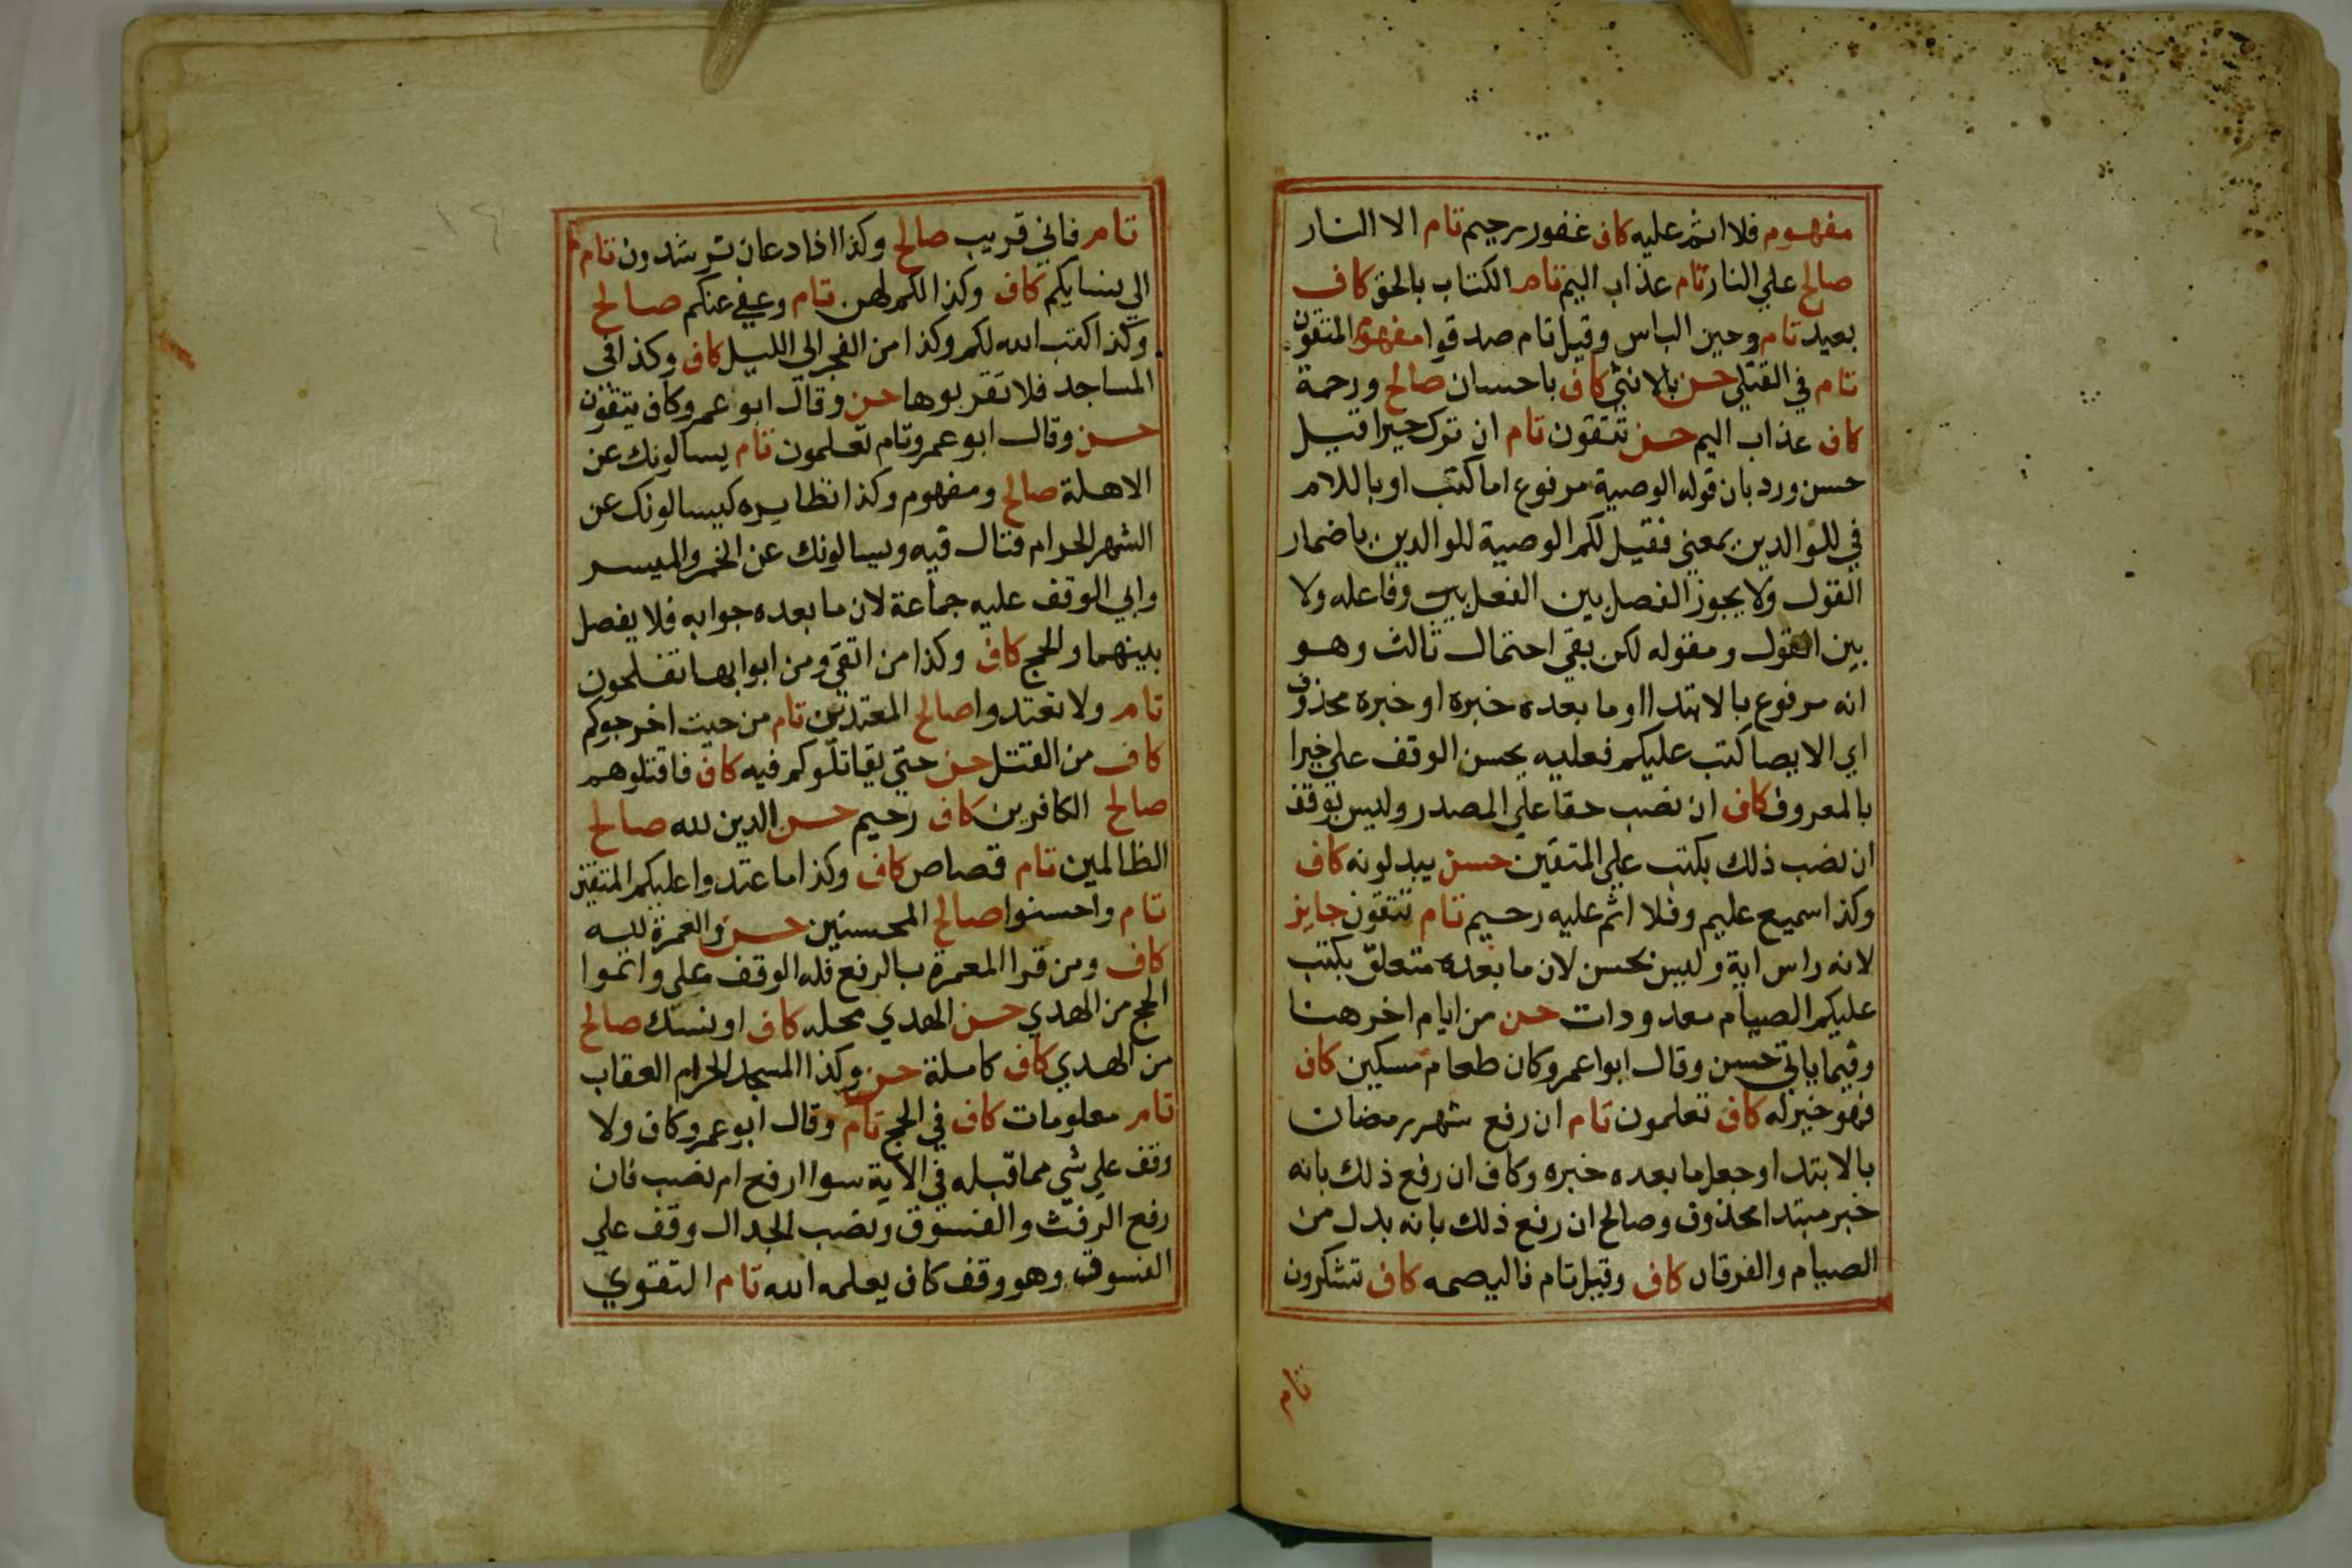 مفهوم فلا اثم عليه كاف غفور رحيم تام الا النار
صالح علي النار تام عذاب اليم تام الكتاب بالحق كاف
بعيد تام وحين الباس وقيل تام صدقوا مفهوم المتقون
تام في القتلي حسن بالانثي كاف باحسان صالح ورحمة
كاف عذاب اليم حسن تتقون تام ان ترك خيرا قيل
حسن ورد بان قوله الوصية مرفوع اما كتب او باللام
في للوالدين بمعني فقيل لكم الوصية للوالدين باضمار
القول ولا يجوز الفصل بين الفعل بين وفاعله ولا
بين القول ومقوله لكن بقي احتمال ثالث وهو
انه مرفوع بالابتدا اوما بعده خبره او خبره محذوف
اي الايصا كتب عليكم فعليه يحسن الوقف علي خيرا
بالمعروف كاف ان نصب حقا علي المصدر وليس بوقف
ان نصب ذلك بكتب علي المتقين حسن يبدلونه كاف
وكذا سميع عليم وفلا اثم عليه رحيم تام تتقون جايز
لانه راس اية وليس بحسن لان ما بعده متعلق بكتب
عليكم الصيام معدودات حسن من ايام اخر هنا
وفيما ياتي حسن وقال ابوا عمرو كان طعام مسكين كاف
فهو خير له كاف تعلمون تام ان رفع شهر رمضان
بالابتدا وجعل ما بعده خبره وكاف ان رفع ذلك بانه
خبر مبتدا محذوف وصالح ان رفع ذلك بانه بدل من
الصيام والفرقان كاف وقيل تام فاليصمه كاف تشكرون
تام
تام فاني قريب صالح وكذا اذا دعان ترشدون تام
الي نسايكم كاف وكذا لكم لهن تام وعفي عنكم صالح
وكذا كتب الله لكم وكذا من الفجر الي الليل كاف وكذا في
المساجد فلا تقربوها حسن وقال ابو عمرو كاف يتقون
حسن وقال ابو عمرو تام تعلمون تام يسالونك عن
الاهلة صالح ومفهوم وكذا نظايره كيسالونك عن
الشهر الحرام قتال فيه ويسالونك عن الخمر والميسر
وابي الوقف عليه جماعة لان ما بعده جوابه فلا يفصل
بينهما والحج كاف وكذا من اتقي ومن ابوابها تفلحون
تام ولا تعتدوا صالح المعتدين تام من حيث اخرجوكم
كاف من القتل حسن حتي يقاتلوكم فيه كاف فاقتلوهم
صالح الكافرين كاف رحيم حسن الدين لله صالح
الظالمين تام قصاص كاف وكذا ما عتدوا عليكم المتقين
تام واحسنوا صالح المحسنين حسن والعمرة لله
كاف ومن قرا المعمرة بالرفع فله الوقف علي واتموا
الحج من الهدي حسن الهدي محله كاف او نسك صالح
من الهدي كاف كاملة حسن وكذا المسجد الحرام العقاب
تام معلومات كاف في الحج تام وقال ابو عمرو كاف ولا
وقف علي شي مما قبله في الاية سوا ارفع ام نصب فان
رفع الرفث والفسوق ونصب الجدال وقف علي
الفسوق وهو وقف كاف يعلمه الله تام التقوي